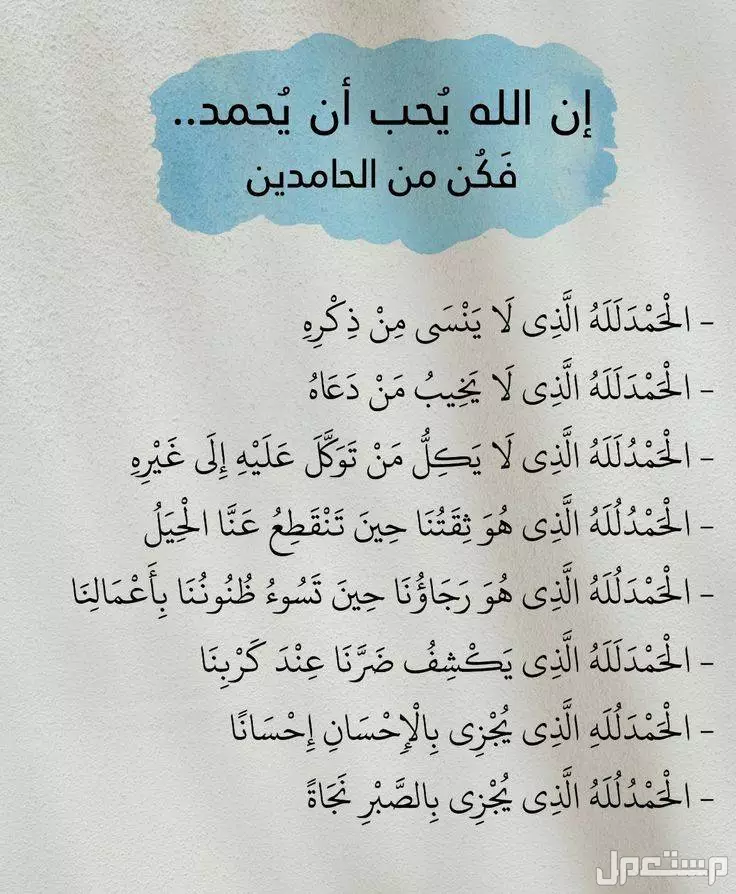 إن الله يُحب أن يُحمد..
فَكُن من الحامدين
- الْحَمْدَلَلَهُ الَّذِى لَا يَنْسَى مِنْ ذِكْرِهِ
- الْحَمْدَلَلَهُ الَّذِى لَا يَخِيبُ مَنْ دَعَاهُ
- الْحَمْدُلَلَهُ الَّذِى لَا يَكِلُّ مَنْ تَوَكَّلَ عَلَيْهِ إِلَى غَيْرِهِ
- الْحَمْدُلُلَهُ الَّذِى هُوَ ثِقَتُنَا حِينَ تَنْقَطِعُ عَنَّا الْحِيَلُ
- الْحَمْدَلُلَهُ الَّذِى هُوَ رَجَاؤُنَا حِينَ تَسُوءُ ظُنُونُنَا بِأَعْمَالِنَا
- الْحَمْدَلَلَهُ الَّذِى يَكْشِفُ ضَرَّنَا عِنْدَ كَرْبِنَا
- الْحَمْدَلُلَهِ الَّذِى يُجْزِى بِالْإِحْسَانِ إِحْسَانًا
- الْحَمْدُلُلَهُ الَّذِى يُجْزِى بِالصَّبْرِ نَجَاةً
مستعمل